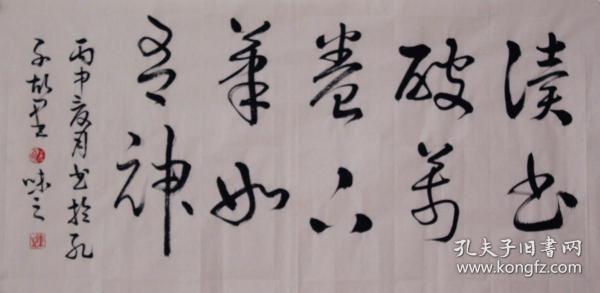 读书
破万
卷下
笔如
有神
丙申夏月书于孔
子故里 味之
孔夫子旧书网
www.kongfz.com